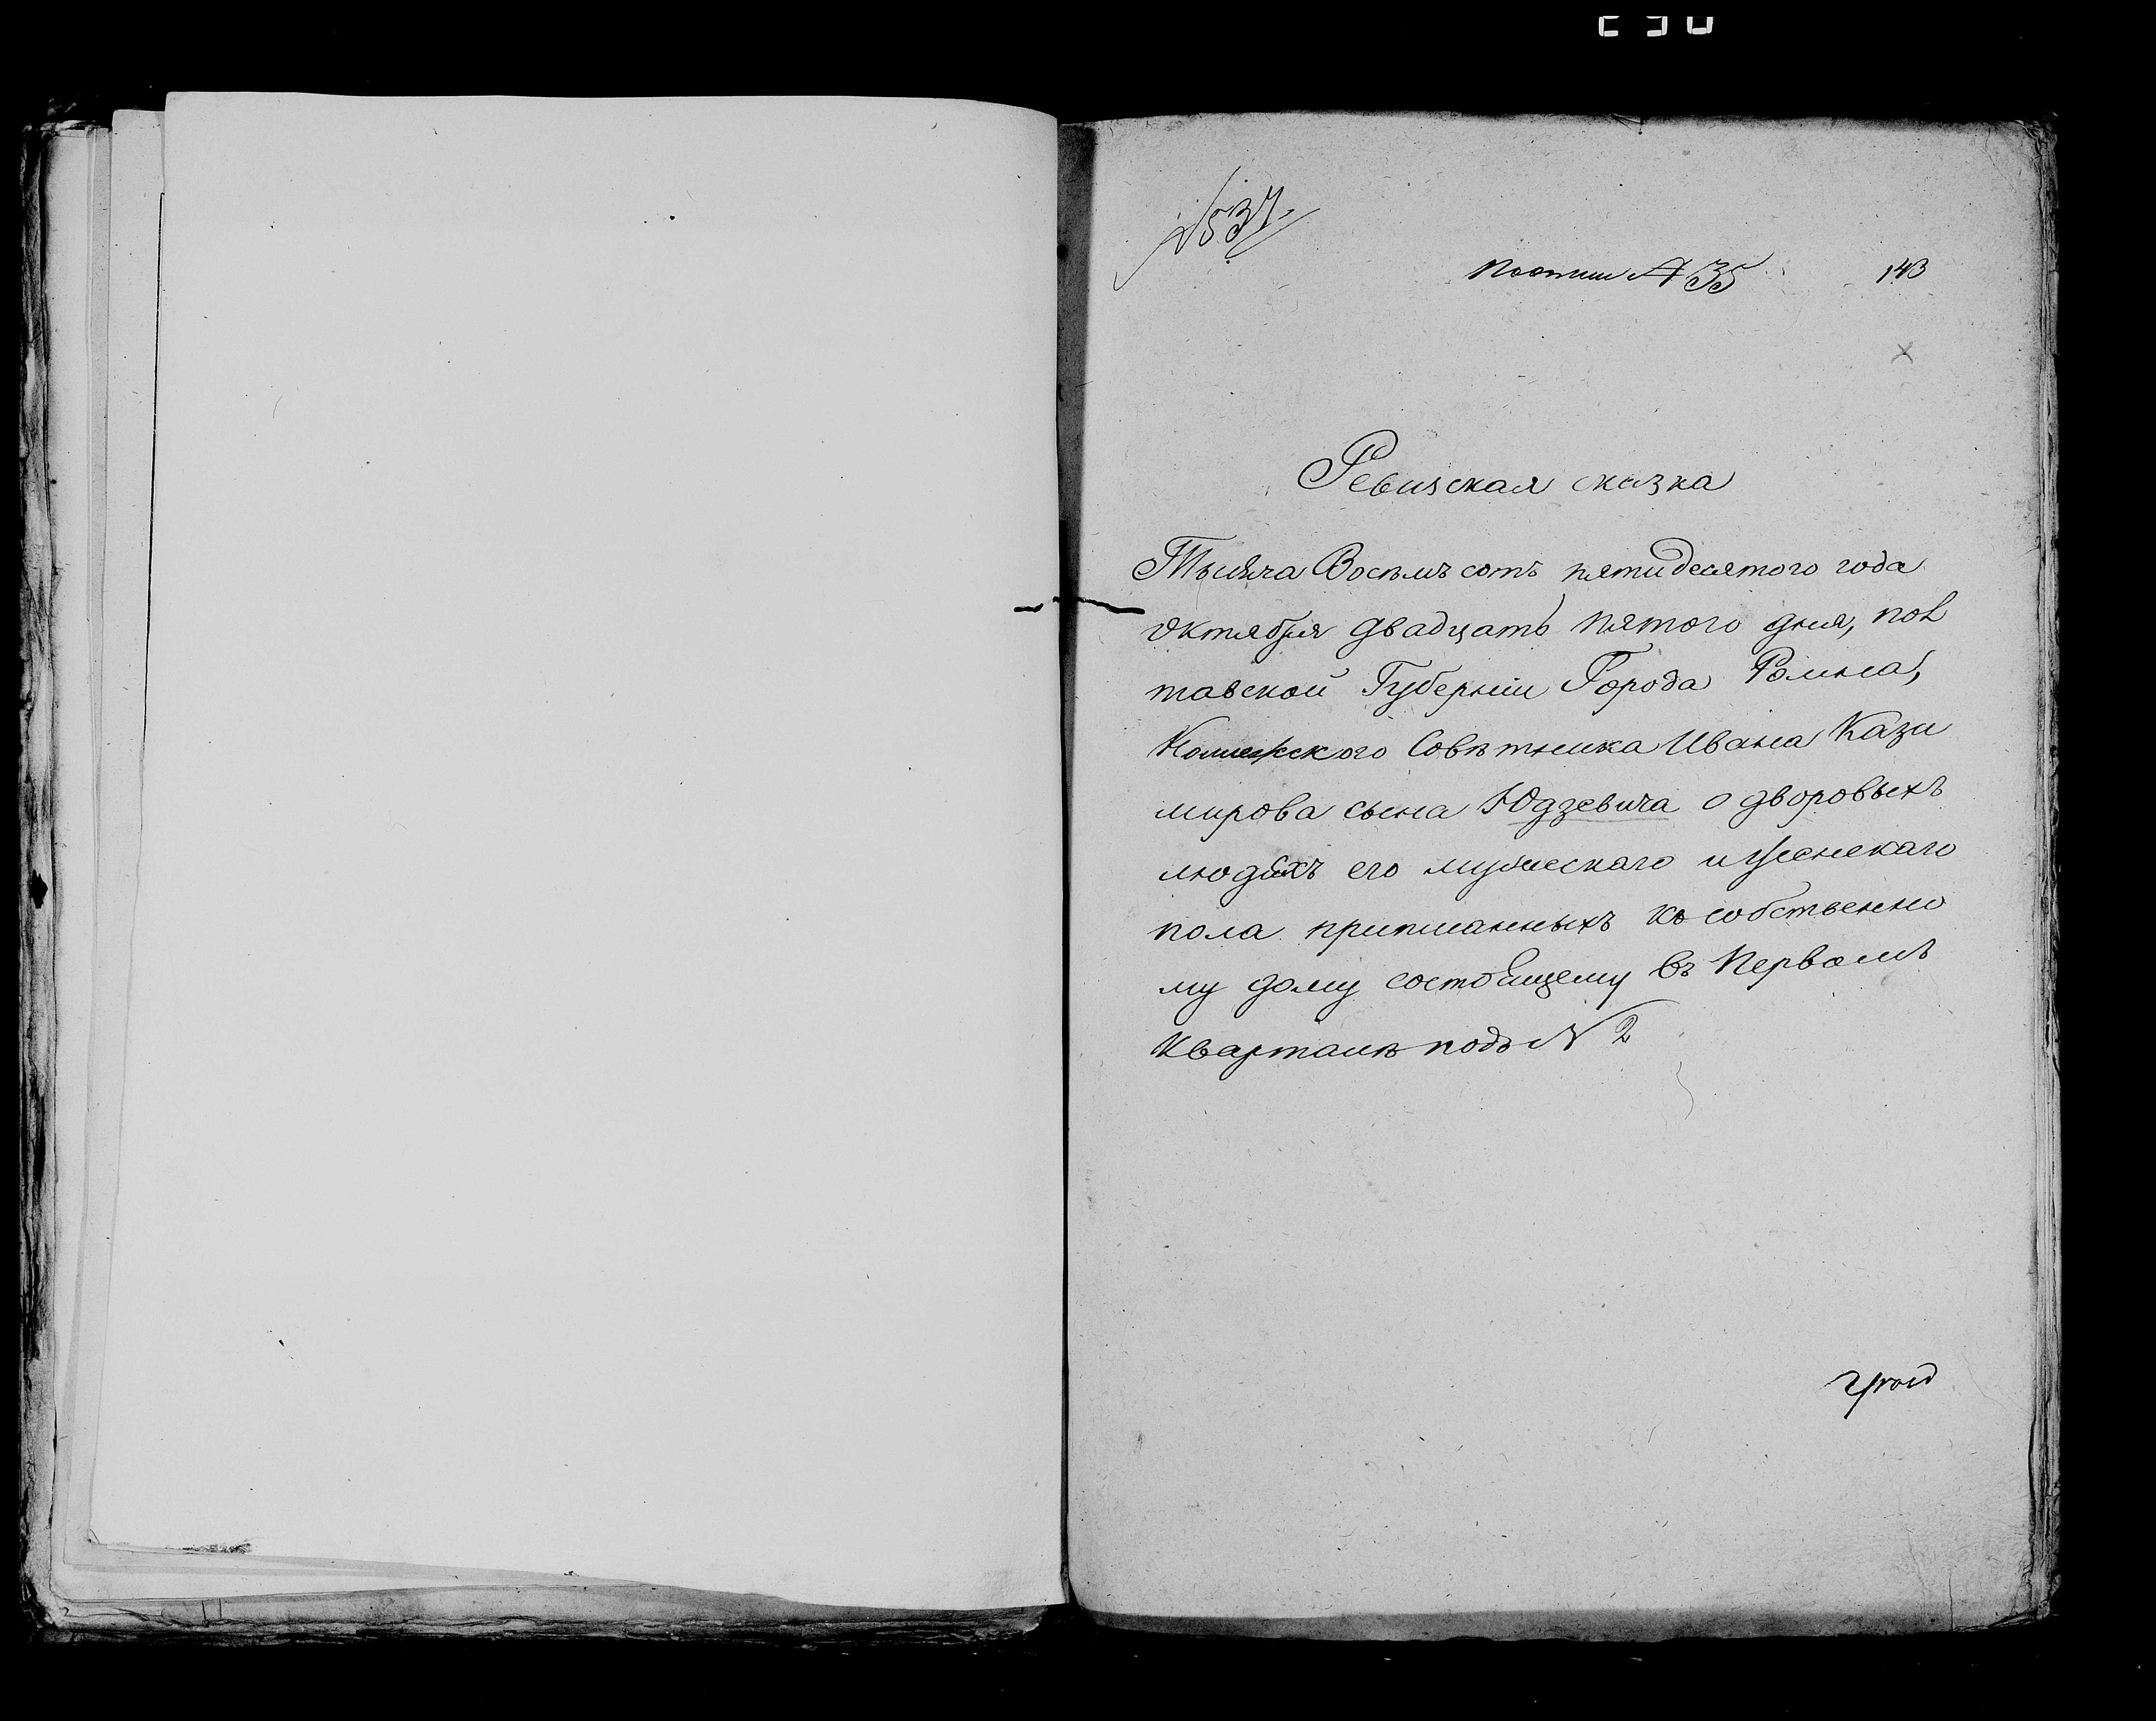 № 537.
По описи № 35
143
Ревизская сказка
Тысяча Восемъ сотъ пятидесятого года
октября двадцать пятого дня, пол
тавской Губерніи Города Ромна,
Колежского Совѣтника Ивана Кази
мирова сына Юдзевича о дворовыхъ
людяхъ его мужескаго и женскаго
пола приписанныхъ къ собственно
му дому состоящему въ Первомъ
Кварталѣ подъ № 2